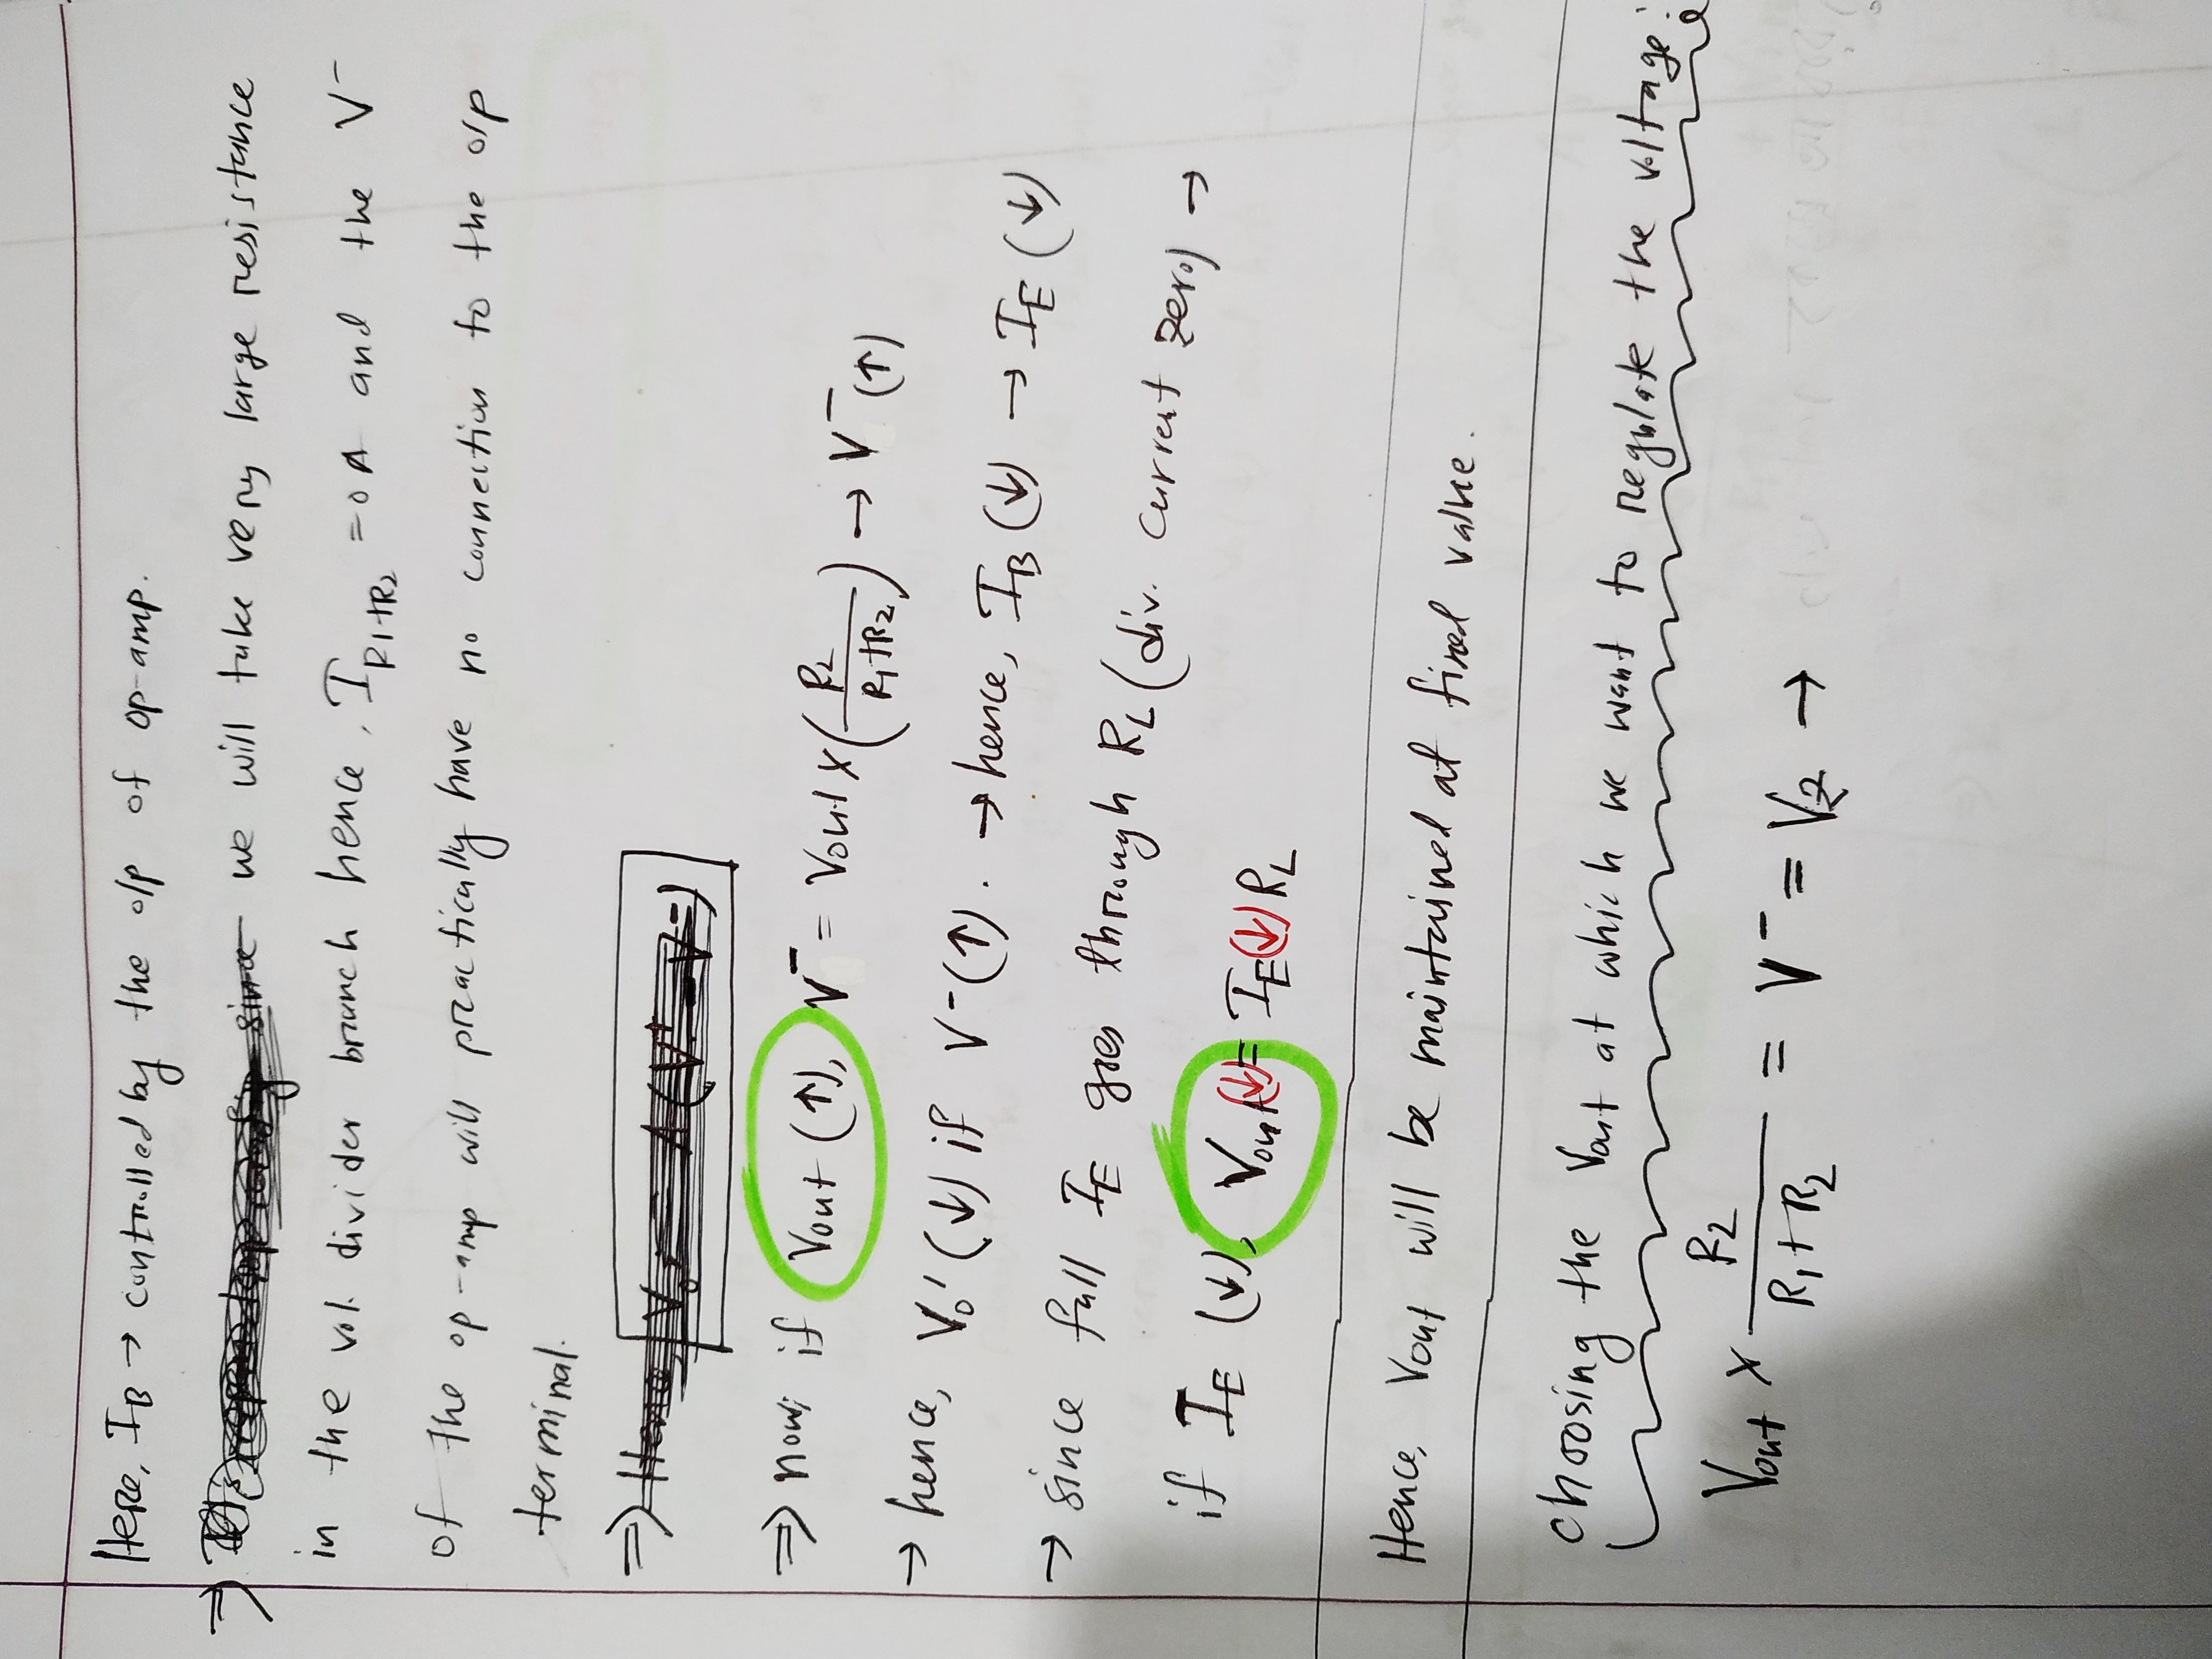 Here, I_B → controlled by the o/p of op-amp.
⇒ since we will take very large resistance
in the vol. divider branch hence, I_R1+R2 = 0 A and the V⁻
of the op-amp will practically have no connection to the o/p
terminal.
⇒ Hence, V₀ = A(V⁺ - V⁻)
⇒ now, if Vout (↑), V⁻ = Vout × (R2 / R1+R2) → V⁻ (↑)
→ hence, V₀' (↓) if V⁻ (↑). → hence, I_B (↓) → I_E (↓)
→ since full I_E goes through R_L (div. current zero) →
if I_E (↓), Vout (↓) = I_E (↓) R_L
Hence, Vout will be maintained at fixed value.
choosing the Vout at which we want to regulate the voltage:
Vout × R2 / R1+R2 = V⁻ = Vz →